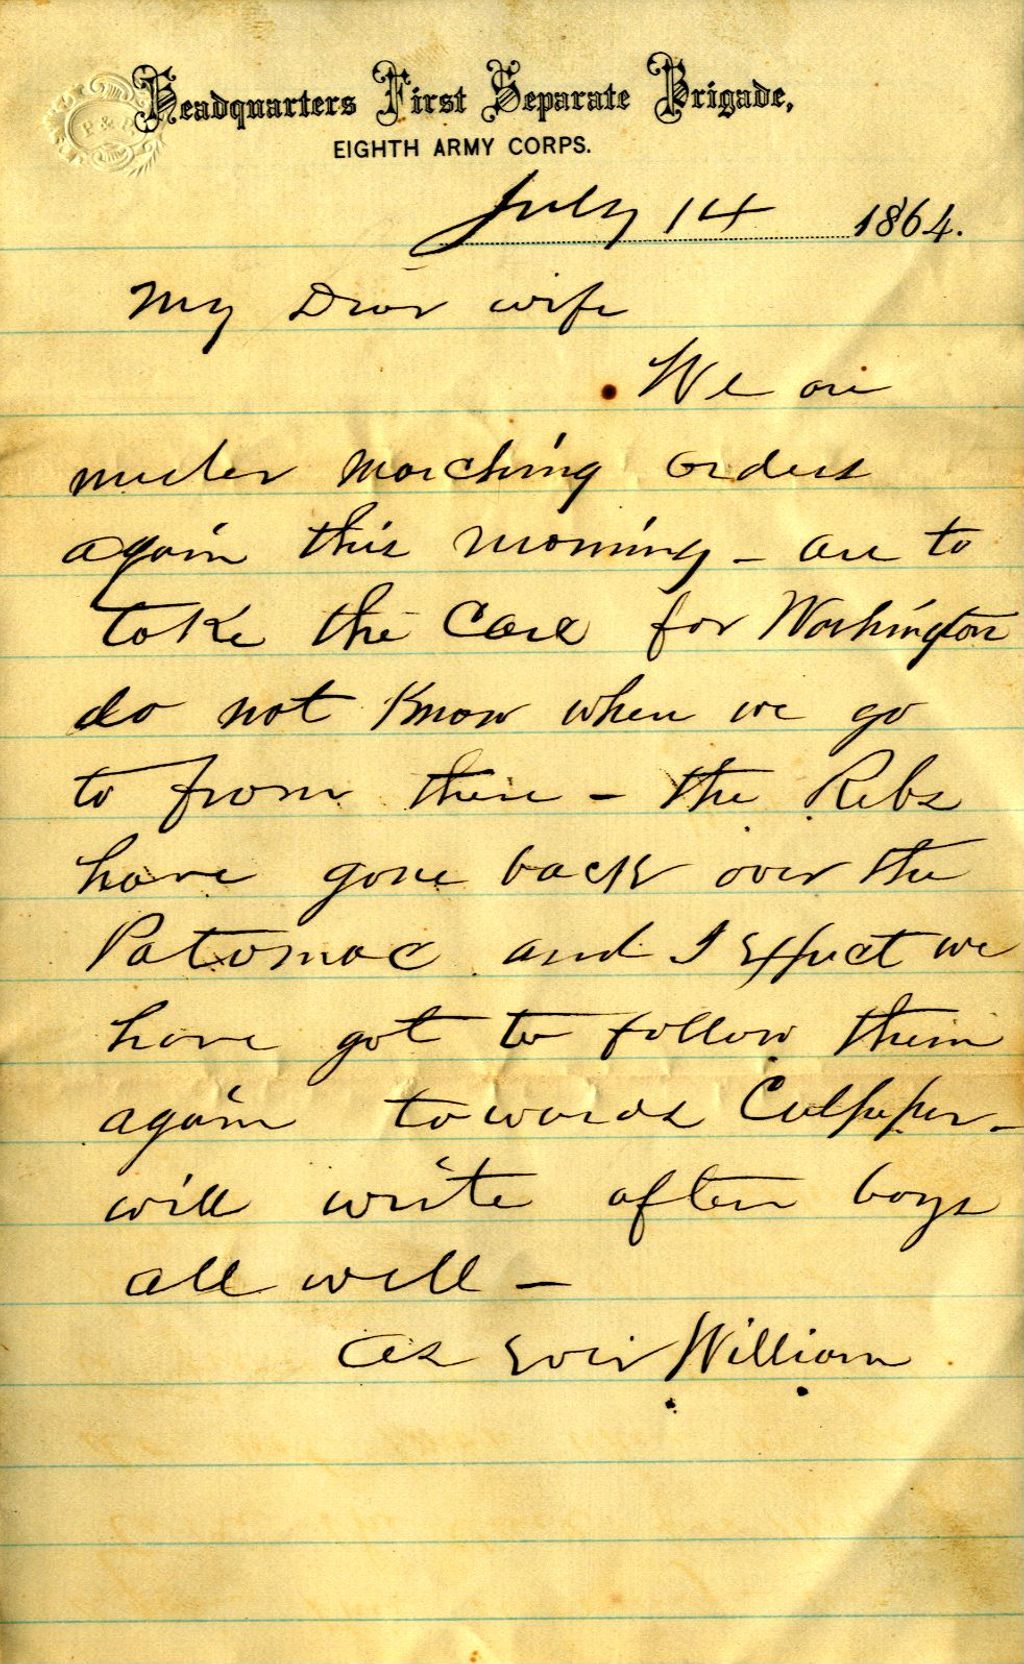 Headquarters First Separate Brigade,
EIGHTH ARMY CORPS.
July 14 1864.
My Dear wife
We are
under marching orders
again this morning - are to
take the Cars for Washington
do not know when we go
to from there - the Rebs
have gone back over the
Potomac and I Expect we
have got to follow them
again towards Culpeper -
will write often boys
all well -
As Ever William